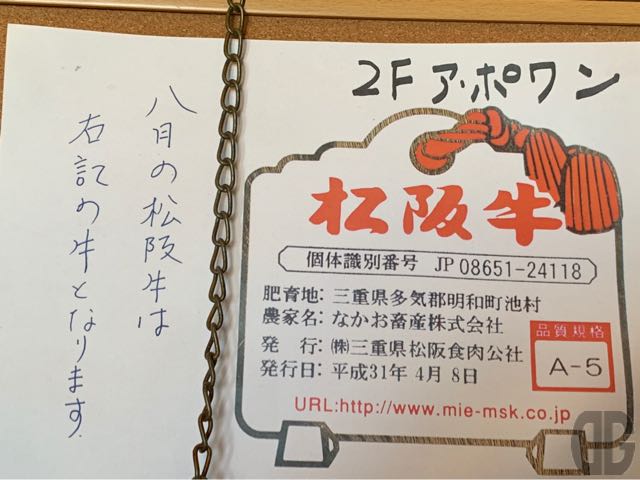 2Fア・ポワン
八月の松阪牛は
右記の牛となります.
松阪牛
個体識別番号 JP 08651-24118
肥育地: 三重県多気郡明和町池村
農家名: なかお畜産株式会社
発 行: ㈱三重県松阪食肉公社
発行日: 平成31年 4月 8日
品質規格
A-5
URL:http://www.mie-msk.co.jp
DG